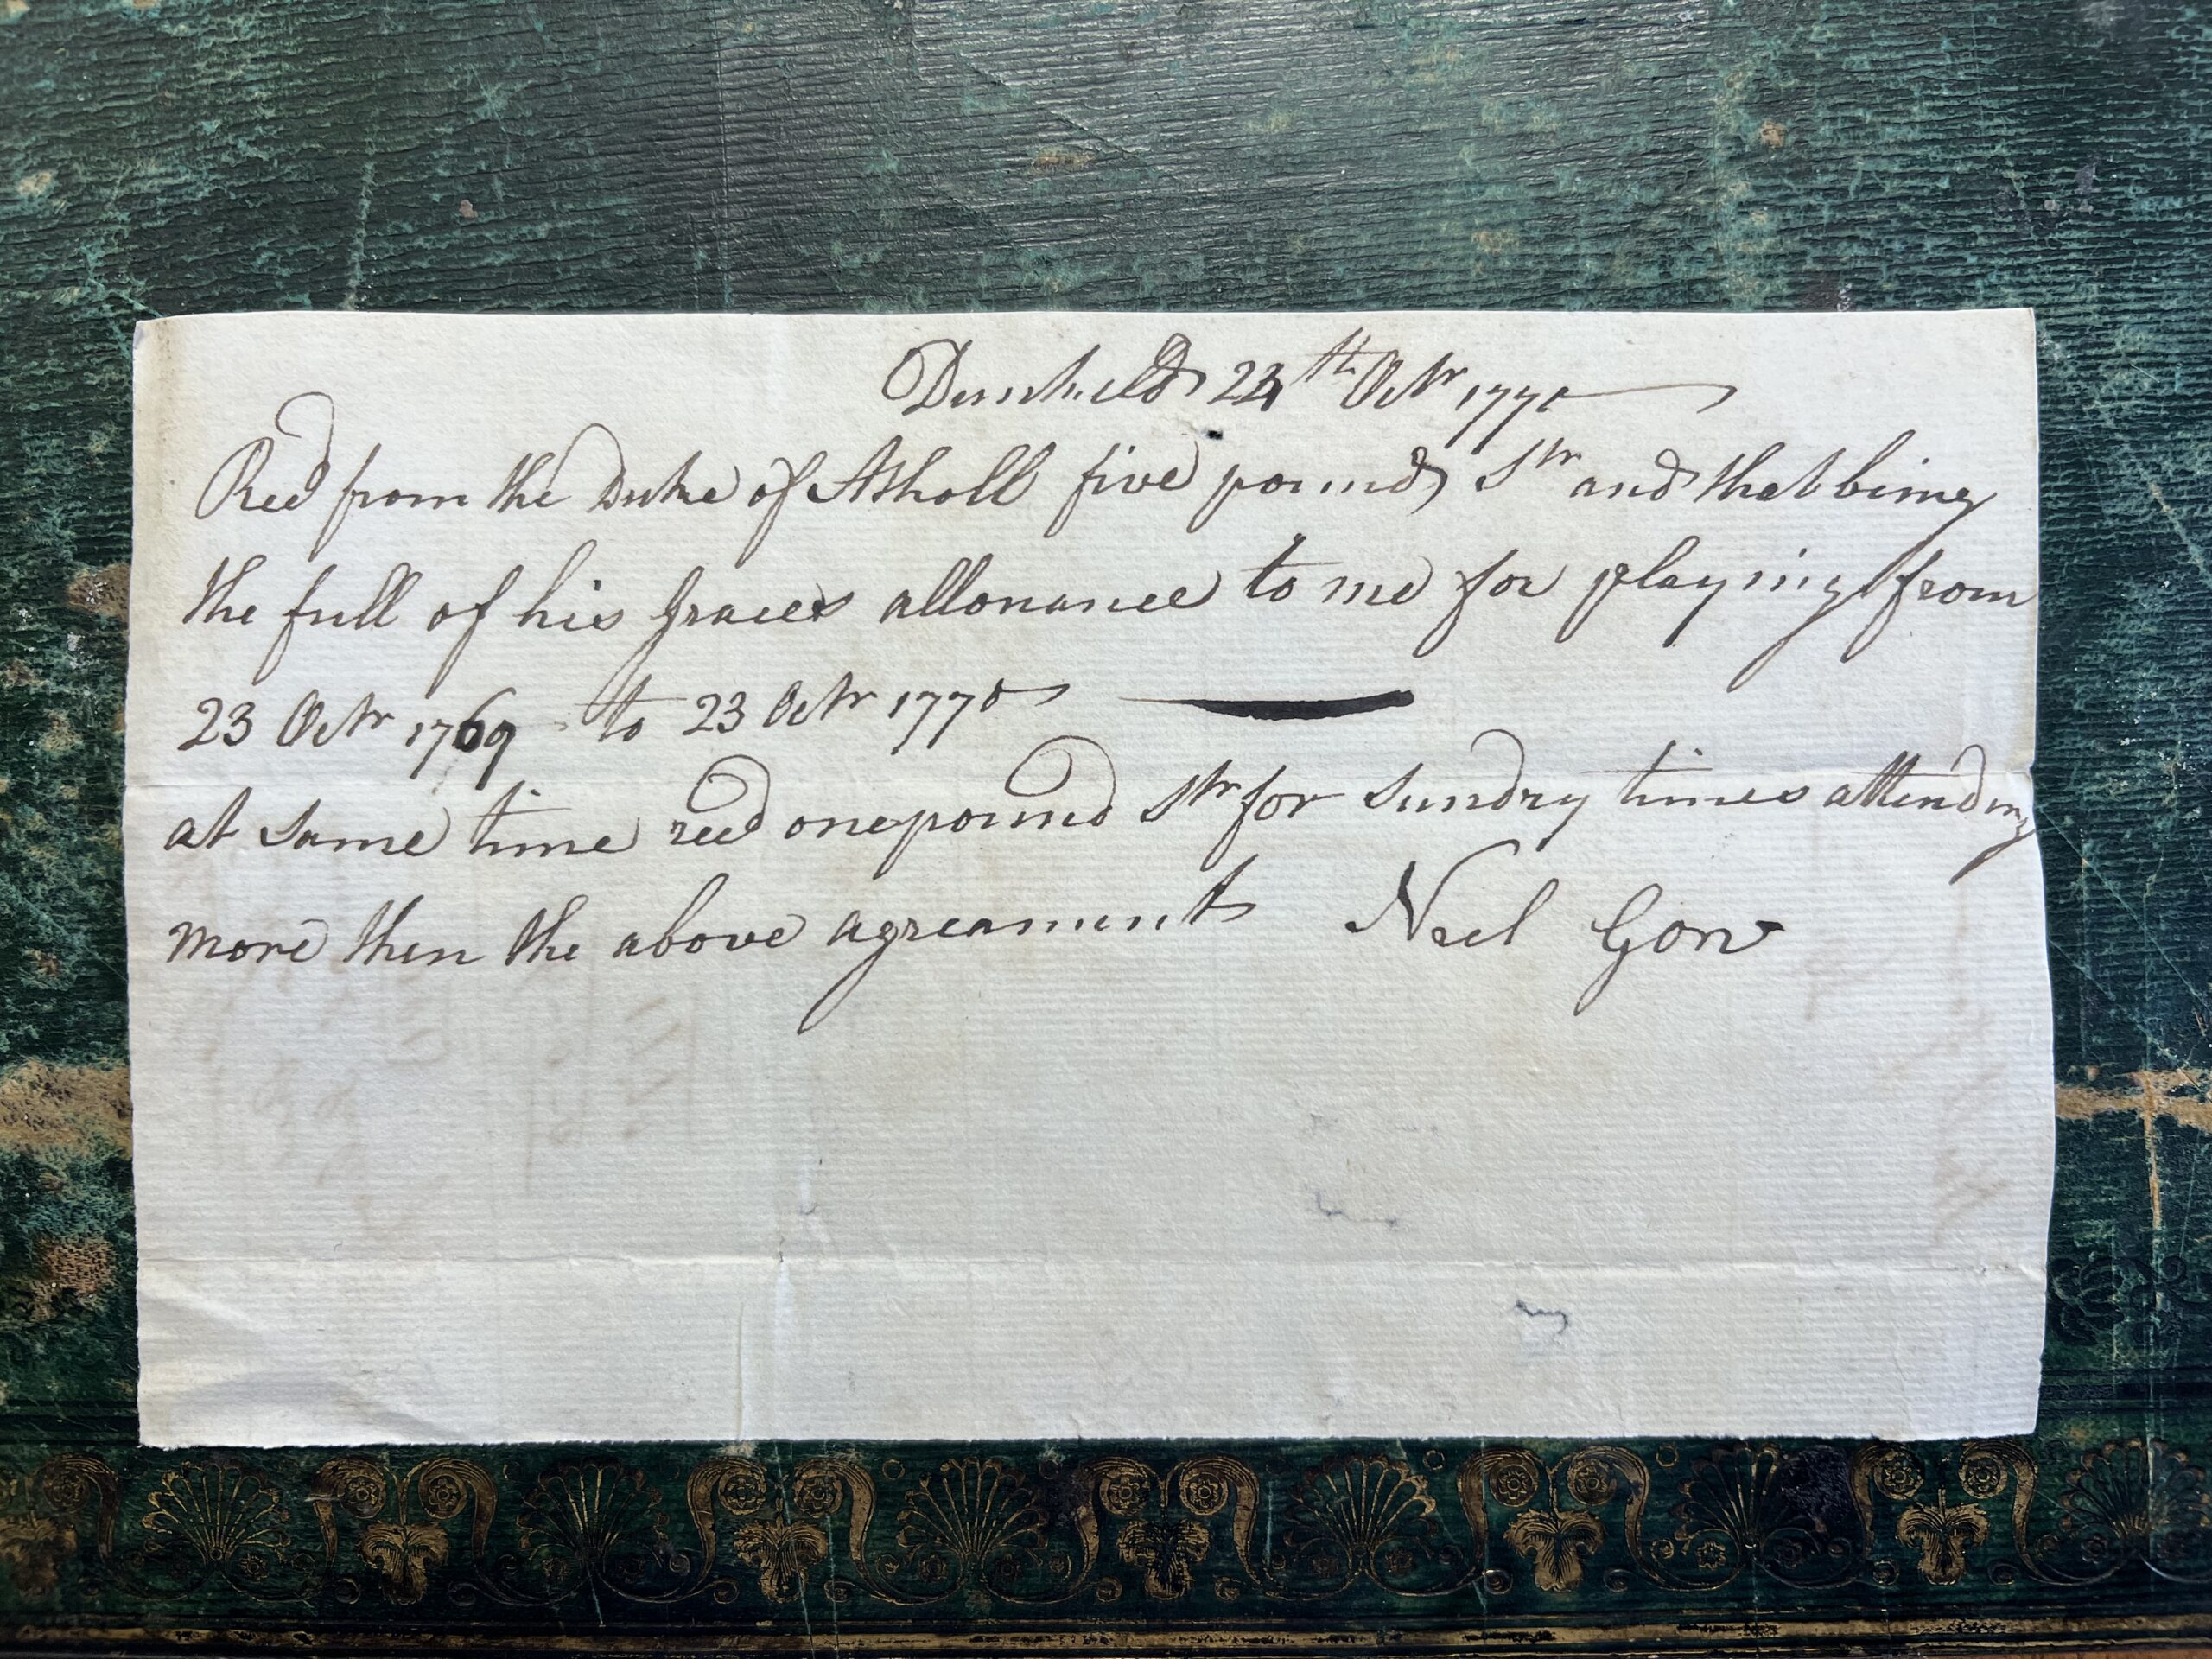 Dunkeld 24th Octr 1770
Recd from the Duke of Atholl five pounds Str and that being
the full of his Graces allouance to me for playing from
23 Octr 1769 to 23 Octr 1770
at same time recd one pound Str for sundry times attending
more then the above agreament Neel Gow